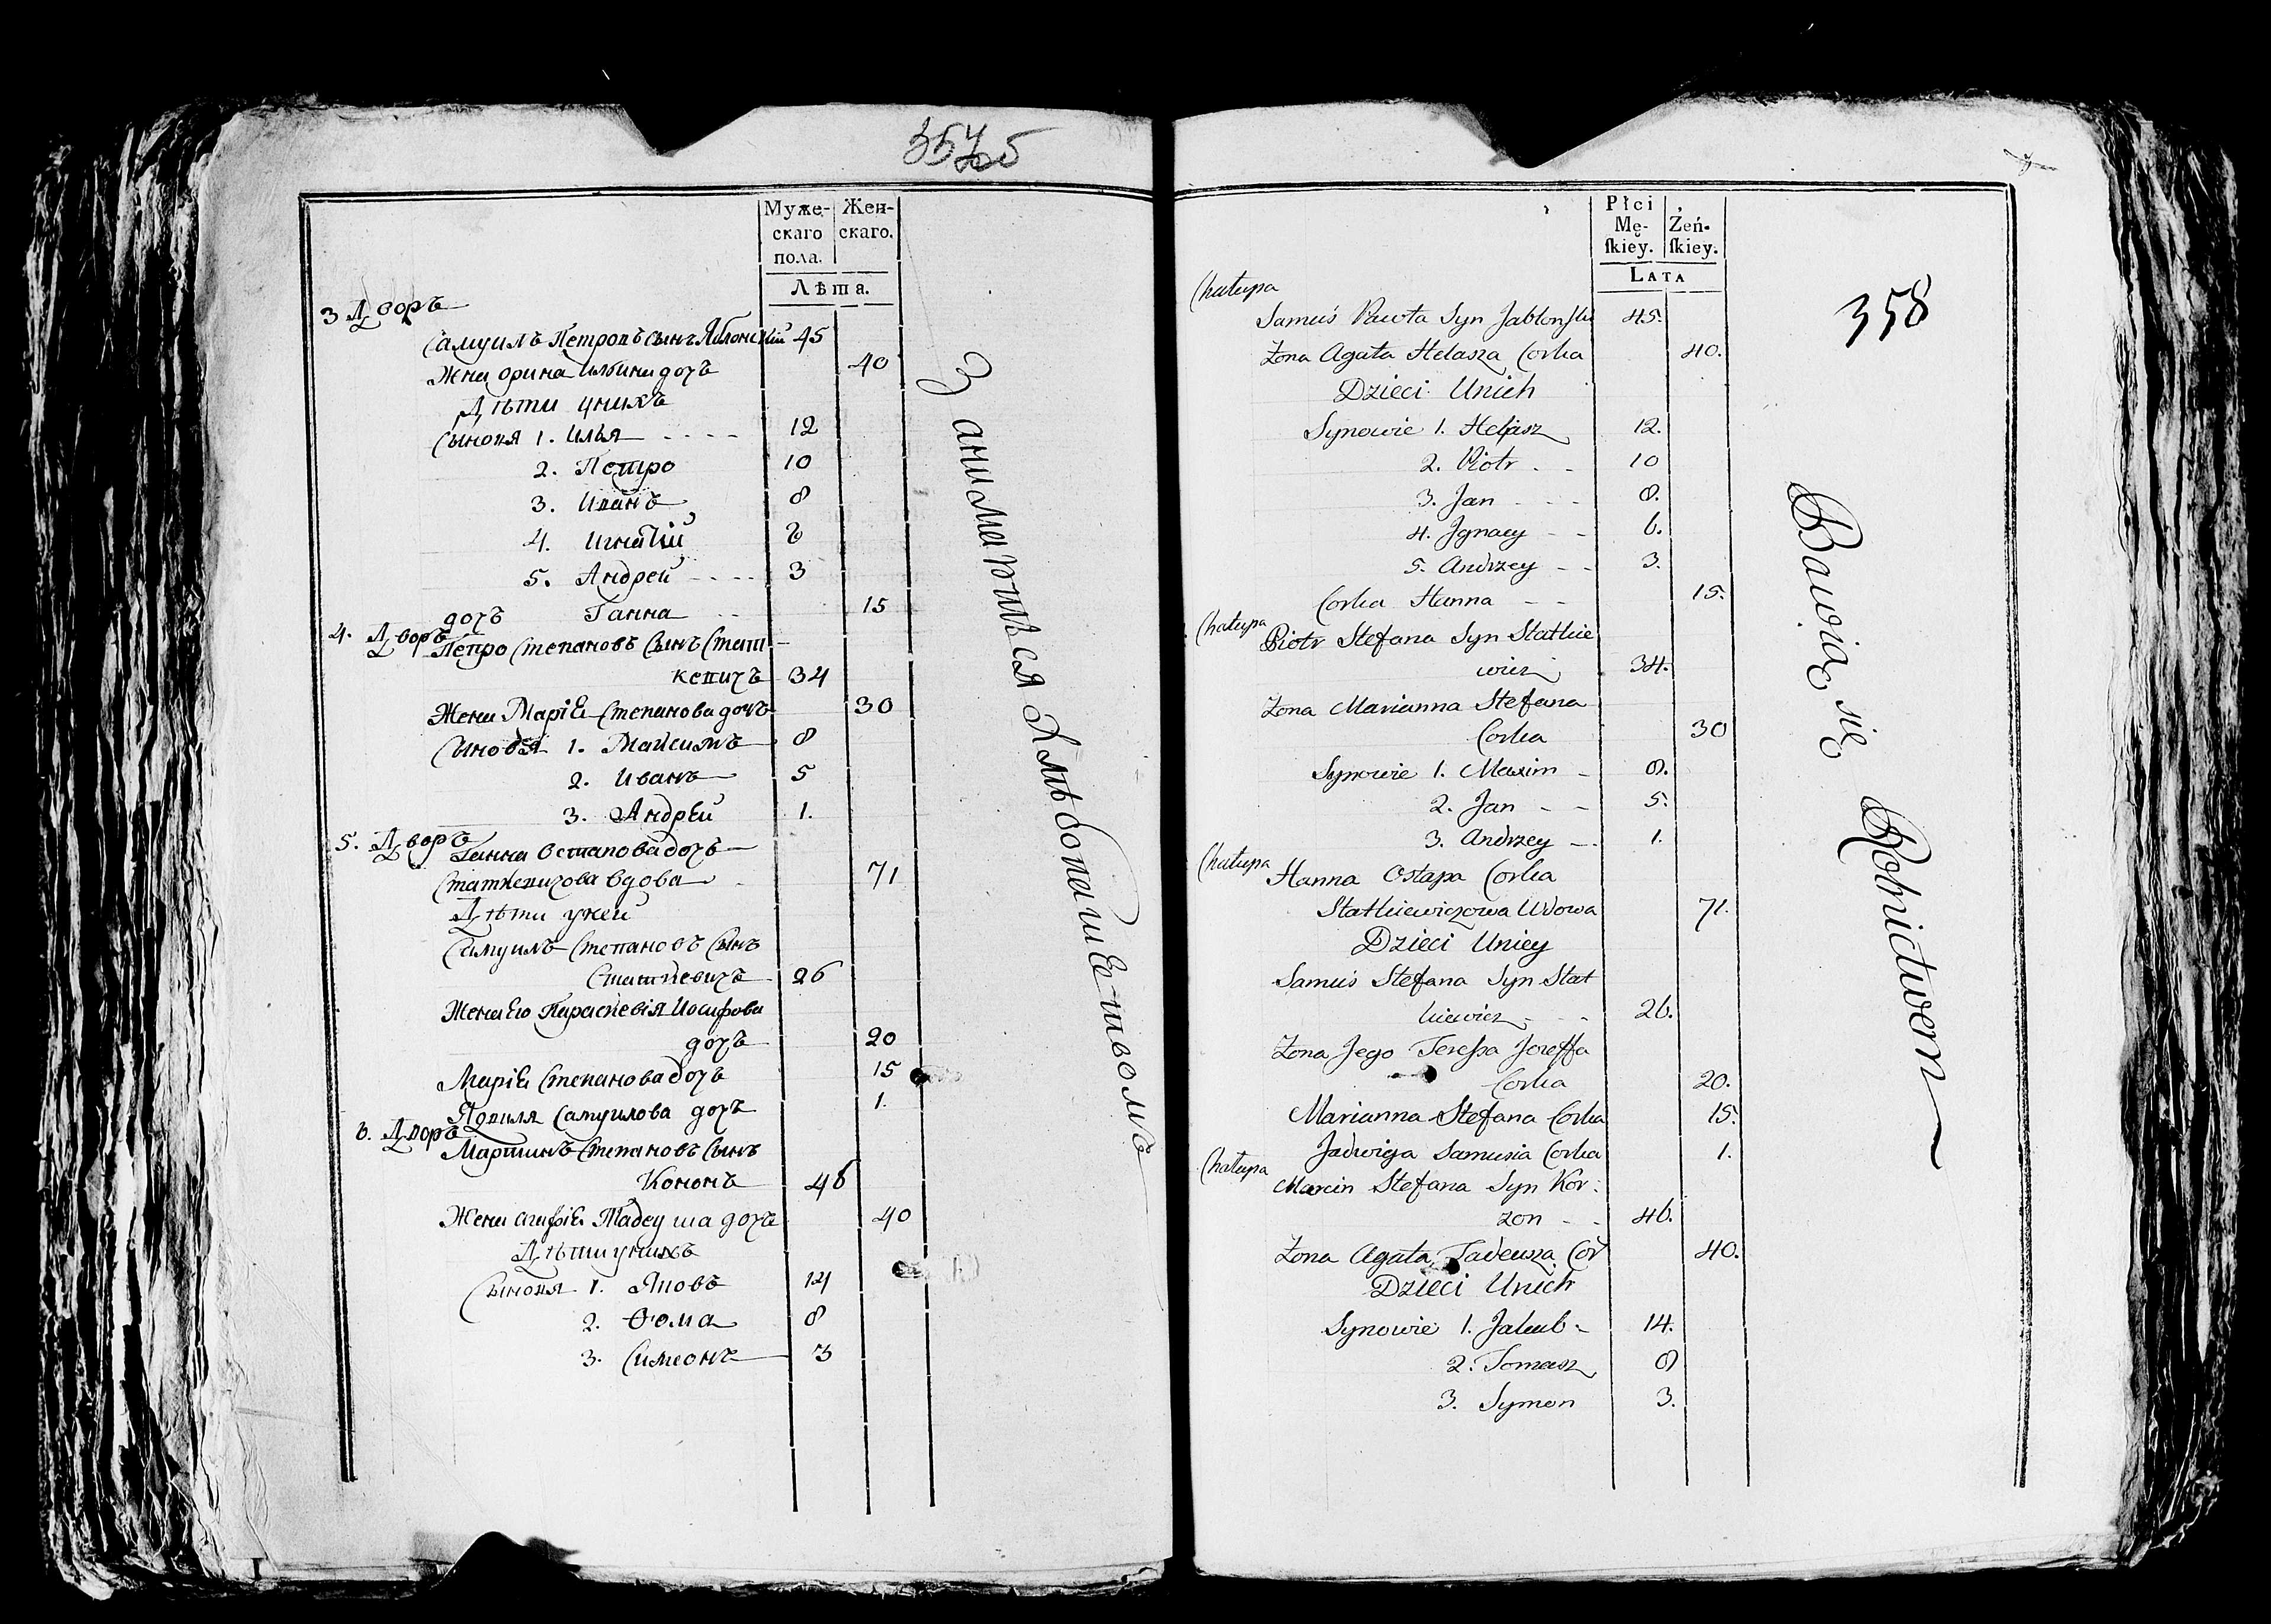 357об
Муже-
скаго
пола.
Жен-
скаго.
Лѣта.
3 Дворъ
Самуилъ Петровъ сынъ Яблонскій 45
Жена орина Ильина дочь 40
Дѣти уних
Сыновя 1. Илья 12
2. Петро 10
3. Иванъ 8
4. Игнатій 6
5. Андрей 3
дочь Ганна 15
4. Дворъ
Петро Степановъ Сынъ Стат
кевичъ 34
Жена Маріа Степанова дочь 30
Сыновя 1. Максимъ 8
2. Иванъ 5
3. Андрей 1.
5. Дворъ
Ганна Остапова дочь
Статкевичова вдова 71
Дѣти уней
Самуилъ Степановъ Сынъ
Статкевичъ 26
Жена Его Параскевія Иосифова
дочь 20
Маріа Степанова дочь 15
Ядвиля Самуилова дочь 1.
6. Дворъ
Мартинъ Степановъ Сынъ
46
Жена Тадеуша дочь 40
Дѣти унихъ
Сыновя 1. Яковъ 14
2. Ѳома 8
3. Симеонъ 3
Занимаютъся Хлѣбопашество мъ
Płci
Mę-
ſkiey.
Żeń-
ſkiey.
LATA
358
Chałupa
Samuś Pawła Syn Jabłonſki 45.
Żona Agata Helasza Corka 40.
Dzieci Unich
Synowie 1. Helasz 12.
2. Piotr 10
3. Jan 8.
4. Jgnacy 6.
5. Andrzey 3.
Corka Hanna 15.
Chałupa
Piotr Stefana Syn Statkie
wicz 34.
Żona Marianna Stefana
Corka 30
Synowie 1. Maxim 8.
2. Jan 5.
3. Andrzey 1.
Chałupa
Hanna Ostapa Corka
Statkiewiczowa Wdowa 71.
Dzieci Uniey
Samuś Stefana Syn Stat
kiewicz 26.
Żona Jego Tereſsa Jozeffa
Corka 20.
Marianna Stefana Corka 15.
Jadwiga Samusia Corka 1.
Chałupa
Marcin Stefana Syn Kor:
zon 46.
Żona Agata Tadeusza Cor 40.
Dzieci Unich
Synowie 1. Jakub 14.
2. Tomasz 8
3. Symon 3.
Bawią się Rolnictwem